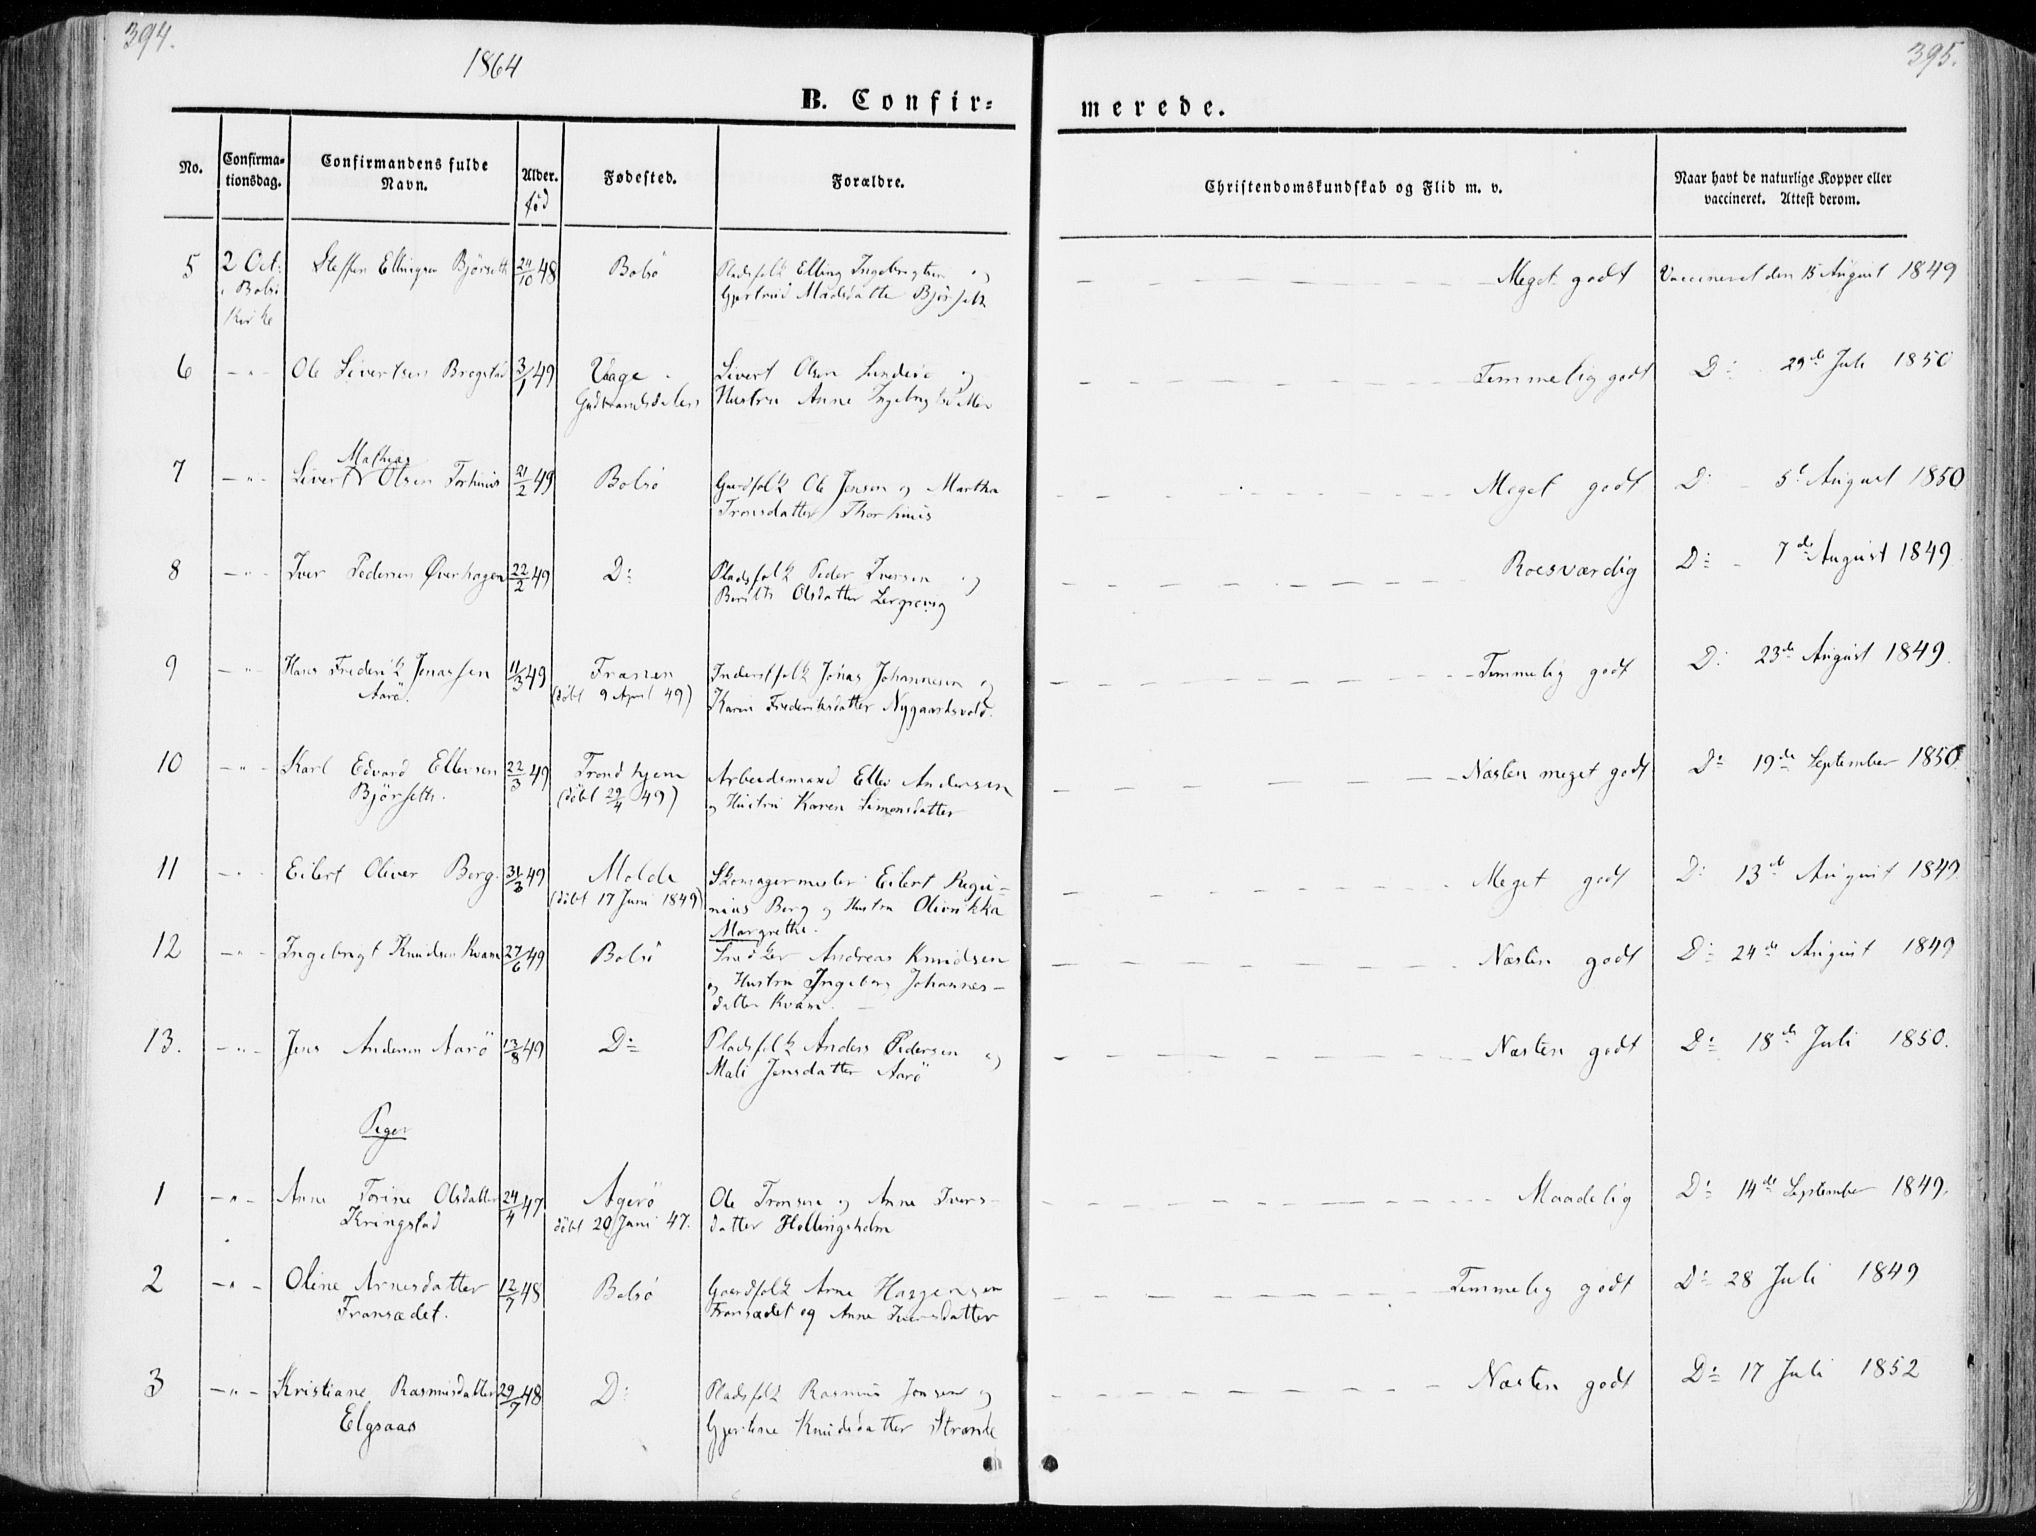 394.
1864
395.
B. Confir-
merede.
No.
Confirma-
tionsdag.
Confirmandens fulde
Navn.
Alder.
fød
Fødested.
Forældre.
Christendomskundskab og Flid m. v.
Naar havt de naturlige Kopper eller
vaccineret. Attest derom.
5 2 Oct: Steffen Ellingsen Björseth 24/10 48 Bolsö Pladsfolk Elling Ingebrigtsen og Meget godt Vaccineret den 15 August 1849
i Bolsö Gjertrud Madsdatter Björseth
Kirke
6 - " - Ole Sivertsen Bregstad 3/1 49 Vaage Sivert Olsen og Temmelig godt D: 29de Juli 1850
Gudbrandsdalen Hustru Anne Ingebrigtsdatter
Mathias
7 - " - Sivert Olsen Torhuus 21/2 49 Bolsö Gaardfolk Ole Jensen og Martha Meget godt D: 5te August 1850.
Tronsdatter Thorhuus
8 - " - Iver Pedersen Øverhagen 22/2 49 D: Pladsfolk Peder Iversen og Roesværdig D: 7de August 1849.
Berith Olsdatter
9 - " - Hans Frederik Jonassen 11/3 49 Frænen Inderstfolk Jonas Johannesen og Temmelig godt D: 23de August 1849.
Aarö. (döbt 9 April 49) Karen Frederiksdatter Nygaardsvold.
10 - " - Karl Edvard Ellevsen 22/3 49 Trondhjem Arbeidsmand Ellev Andersen Næsten meget godt D: 19de September 1850.
Björseth. (döbt 29/4 49) og Hustru Karen Simonsdatter
11 - " - Eilert Oliver Berg. 31/3 49 Molde Skomagermester Eilert Regi- Meget godt D: 13de August 1849.
(döbt 17 Juni 1849) nius Berg og Hustru Olivikka
Margrethe.
12 - " - Ingebrigt Knudsen Kvam 27/6 49 Bolsö Andreas Knudsen Næsten godt D: 24de August 1849
og Hustru Ingeborg Johannes-
datter Kvam.
13. - " - Jens Andersen Aarö 13/8 49 D: Pladsfolk Anders Pedersen og Næsten godt D: 18de Juli 1850.
Mali Jensdatter Aarö
Piger
1 - " - Anne Torine Olsdatter 24/4 47 Agerö Ole Tronsen og Anne Ivers- Maadelig D: 14de September 1849.
Kringstad döbt 20 Juni 47. datter Hollingsholm
2 - " - Oline Arnesdatter 12/7 48 Bolsö Gaardfolk Arne Haagensen Temmelig godt D: 28 Juli 1849
Fransædet. Fransædet og Anne Iversdatter
3 - " - Kristiane Rasmusdatter 29/7 48 D: Pladsfolk Rasmus Jonsen og Næsten godt D: 17 Juli 1852
Elgsaas Gjertine Knudsdatter Strande